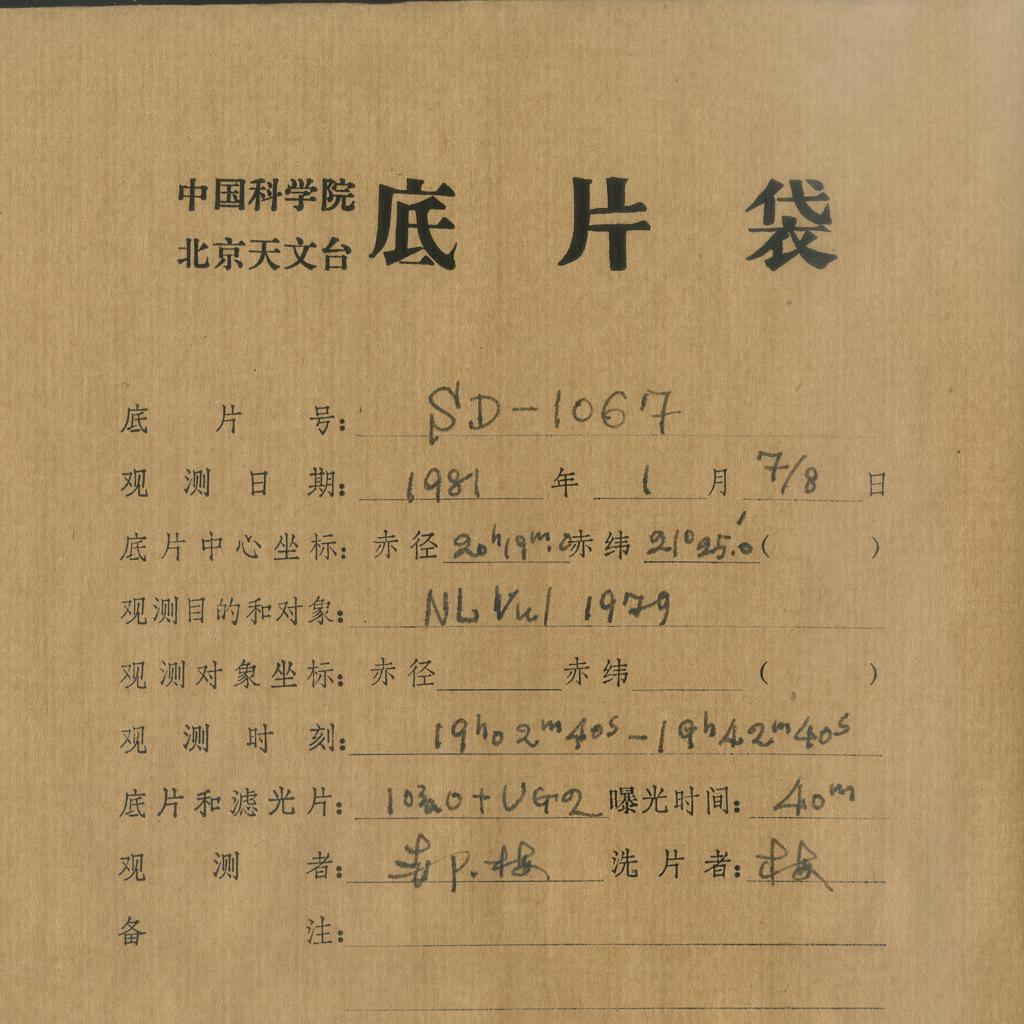 中国科学院
北京天文台
底片袋
底片号: SD-1067
观测日期: 1981年1月7/8日
底片中心坐标: 赤径 20h19m.0 赤纬 21°25.'0 ( )
观测目的和对象: NL Vul 1979
观测对象坐标: 赤径 赤纬 ( )
观测时刻: 19h02m40s-19h42m40s
底片和滤光片: 103aO+UG2 曝光时间: 40m
观测者: P. 梅 洗片者: 梅
备注: